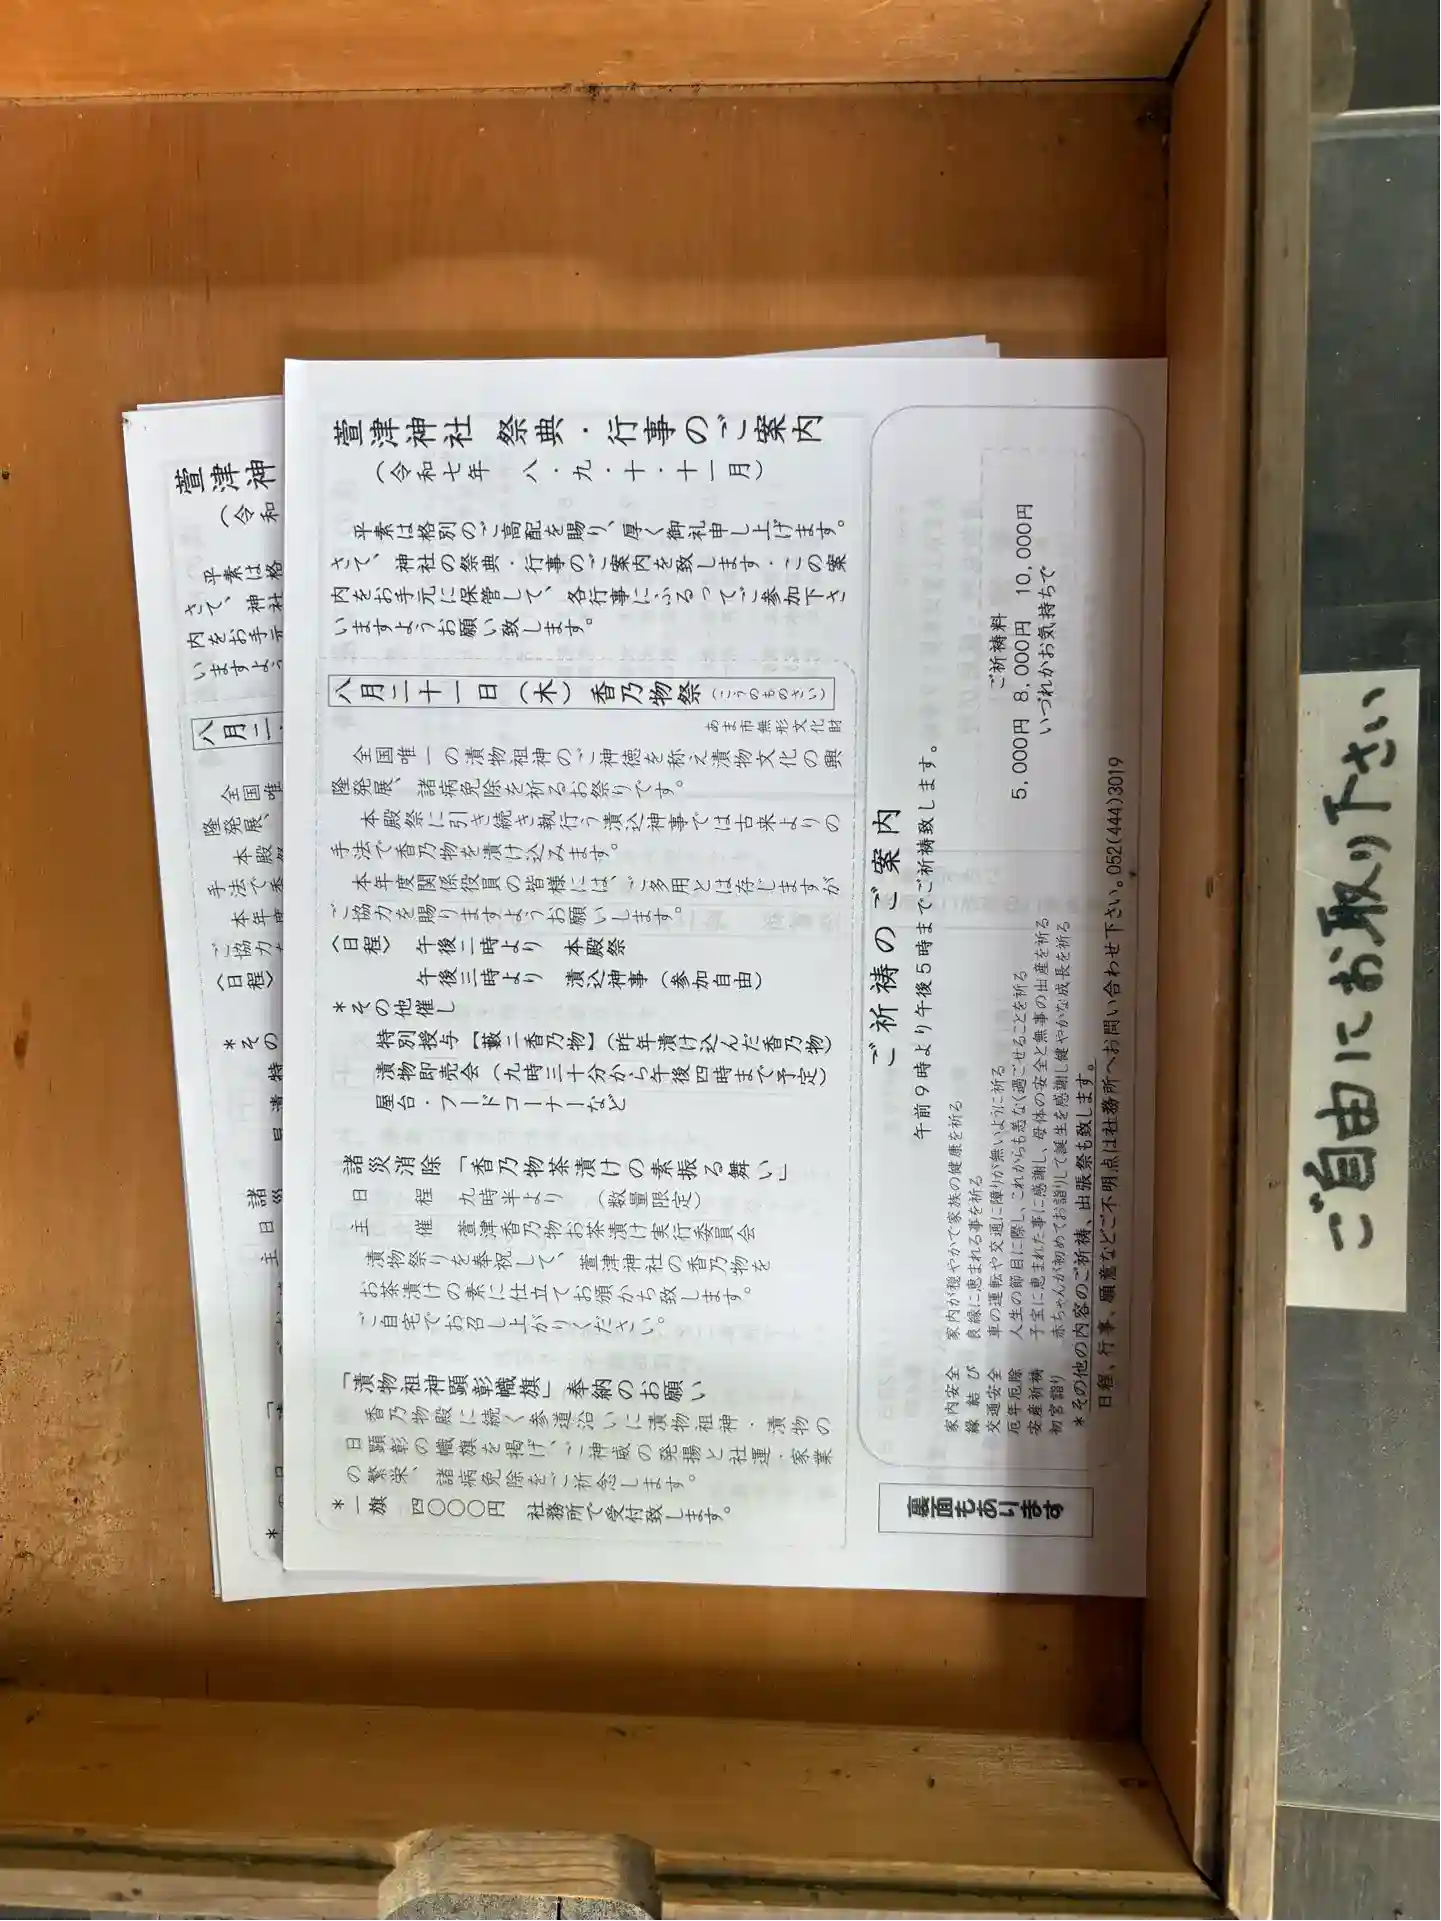 萱津神社 祭典・行事のご案内
(令和七年 八・九・十・十一月)
平素は格別のご高配を賜り、厚く御礼申し上げます。
さて、神社の祭典・行事のご案内を致します・この案
内をお手元に保管して、各行事にふるってご参加下さ
いますようお願い致します。
八月二十一日(木) 香乃物祭(こうのものさい)
あま市無形文化財
全国唯一の漬物祖神のご神徳を称え漬物文化の興
隆発展、諸病免除を祈るお祭りです。
本殿祭に引き続き執行う漬込神事では古来よりの
手法で香乃物を漬け込みます。
本年度関係役員の皆様には、ご多用とは存じますが
ご協力を賜りますようお願いします。
〈日程〉 午後二時より 本殿祭
午後三時より 漬込神事(参加自由)
*その他催し
特別授与【藪二香乃物】(昨年漬け込んだ香乃物)
漬物即売会(九時三十分から午後四時まで予定)
屋台・フードコーナーなど
諸災消除「香乃物茶漬けの素振る舞い」
日 程 九時半より (数量限定)
主 催 萱津香乃物お茶漬け実行委員会
漬物祭りを奉祝して、萱津神社の香乃物を
お茶漬けの素に仕立てお頒かち致します。
ご自宅でお召し上がりください。
「漬物祖神顕彰幟旗」奉納のお願い
香乃物殿に続く参道沿いに漬物祖神・漬物の
日顕彰の幟旗を掲げ、ご神威の発揚と社運・家業
の繁栄、諸病免除をご祈念します。
*一旗 四〇〇〇円 社務所で受付致します。
ご祈祷のご案内
午前9時より午後5時までご祈祷致します。
家内安全 家内が穏やかで家族の健康を祈る
縁結び 良縁に恵まれる事を祈る
交通安全 車の運転や交通に障りが無いように祈る
厄年厄除 人生の節目に際し、これからも恙なく過ごせることを祈る
安産祈祷 子宝に恵まれた事に感謝し、母体の安全と無事の出産を祈る
初宮詣り 赤ちゃんが初めてお詣りして誕生を感謝し健やかな成長を祈る
ご祈祷料
5,000円 8,000円 10,000円
いづれかお気持ちで
*その他の内容のご祈祷、出張祭も致します。
日程、行事、願意などご不明点は社務所へお問い合わせ下さい。052(444)3019
裏面もあります
萱津神
(令和
平素は格
さて、神社
内をお手元
いますよう
八月二
全国唯
隆発展、
本殿祭
手法で香
本年度
ご協力
〈日程〉
*その
特
諸災
日
主
ご自由にお取り下さい